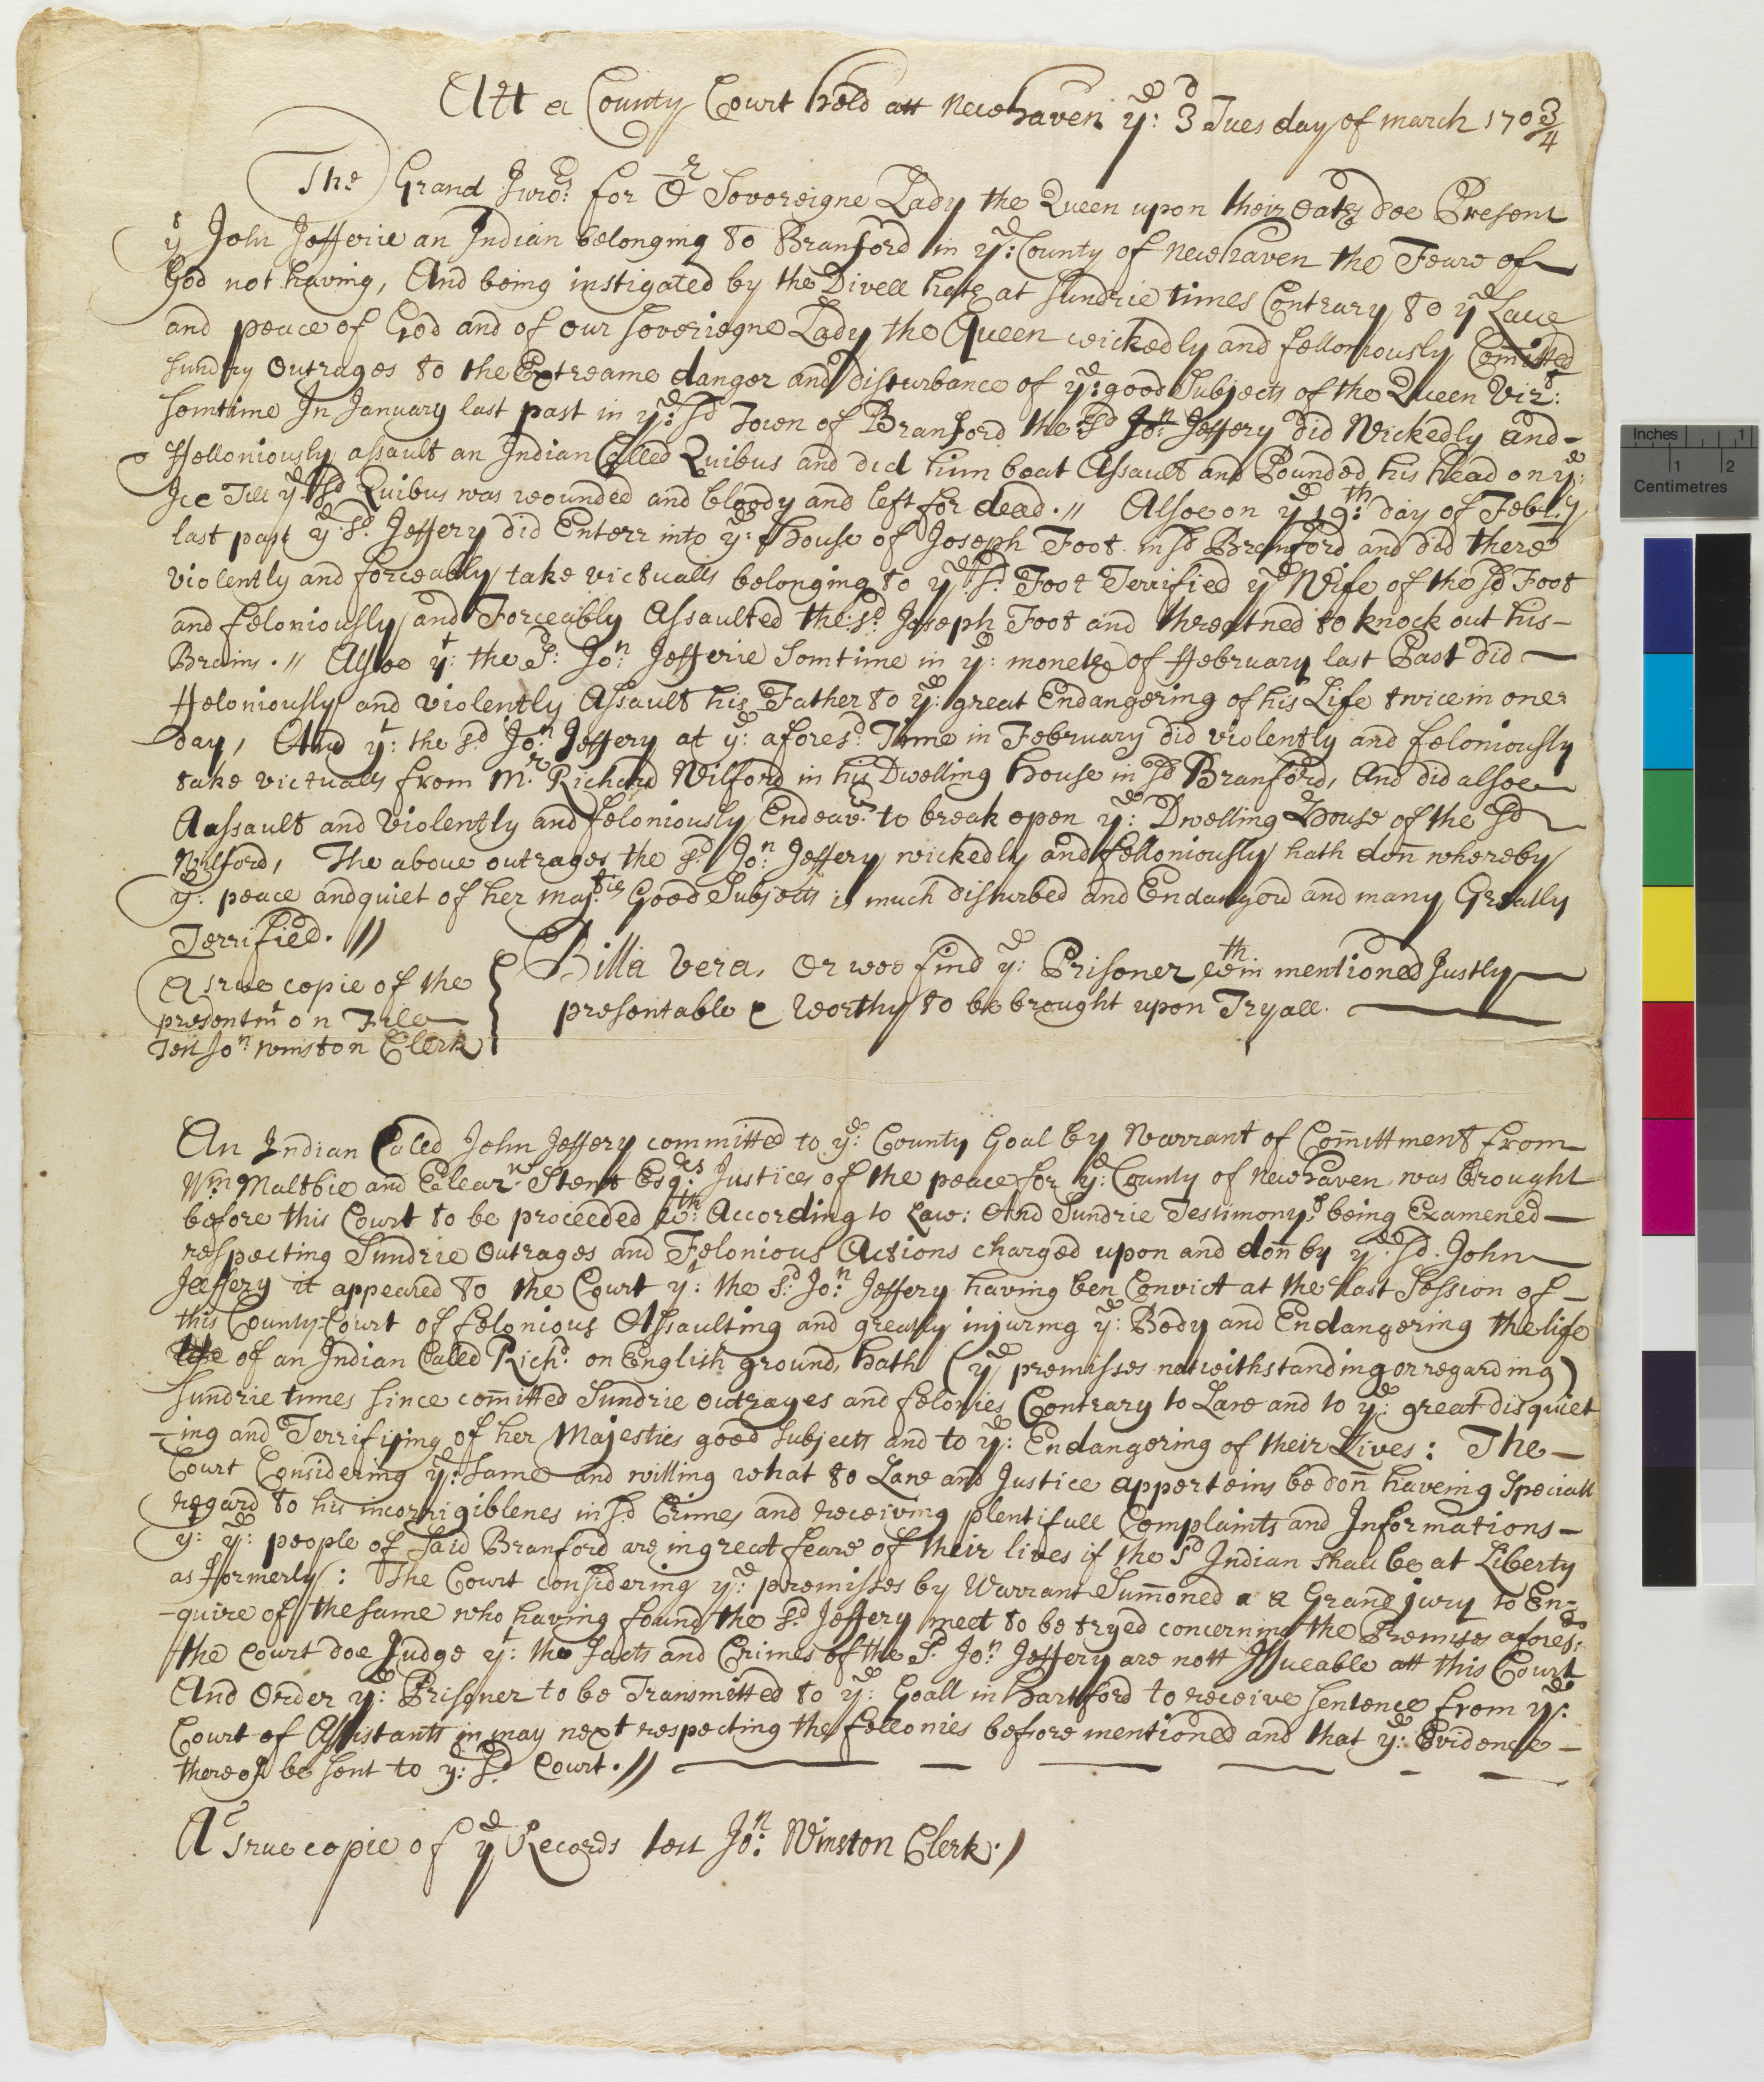 Att a County Court held att Newhaven ye: 3d Tuesday of march 1703/4
The Grand Juros: for Or Sovereigne Lady the Queen upon their oaths doe Present
yt John Jefferie an Indian belonging to Branford in ye: County of Newhaven the Feare of
God not having, And being instigated by the Divell hath at sundrie times Contrary to ye Law
and peace of God and of our soveriegne Lady the Queen wickedly and felloniously Comitted
sundry Outrages to the Extreame danger and disturbance of ye: good Subjects of the Queen Vizt:
somtime In January last past in ye: sd Town of Branford the sd Jon: Jeffery did Wickedly and-
ffelloniously assault an Indian Called Quibus and did him beat Assault and Pounded his head on ye:
Ice Till ye: sd Quibus was wounded and bloody and left for dead. // Alsoe on ye 19th: day of Febry
last past ye sd. Jeffery did Enterr into ye: house of Joseph Foot in sd Branford and did there
violently and forceably take victualls belonging to ye sd. Foot Terrified ye Wife of the sd Foot
and feloniously and Forceably Assaulted the: sd Joseph Foot and threatned to knock out his-
Brains. // Alsoe yt: the sd: Jon: Jefferie Somtime in ye: moneth of ffebruary last Past did
ffeloniously and violently Assault his Father to ye: great Endangering of his Life twice in one
day, And yt: the sd Jon: Jeffery at ye: aforesd. Time in February did violently and feloniously
take victualls from Mr. Richard Wilford in his Dwelling house in sd Branford, And did alsoe
Aassault and violently and feloniously Endeavr: to break open ye: Dwelling House of the sd
Wilford, The above outrages the sd. Jon: Jeffery wickedly and felloniously hath don whereby
ye: peace and quiet of her majties Good Subjects is much disturbed and Endangerd and many Greatly
Terrified. ///
A true copie of the
presentmt on File
Test Jon: Winston Clerk
Billa Vera, Or wee find ye: Prisoner wthin mentioned Justly
presentable & worthy to be brought upon Tryall.
An Indian Caled John Jeffery committed to ye: County Goal by Warrant of Comittment from
Wm: Maltbie and Eleazr: Stent Esqrs: Justices of the peace for ye: County of Newhaven was brought
before this Court to be proceeded wth: According to Law: And Sundrie Testimonys being Examened
respecting Sundrie Outrages and Felonious Actions charged upon and don by ye: sd. John
Jeffery it appeared to the Court yt: the sd: Jon: Jeffery having ben Convict at the last Session of-
this County Court of felonious Assaulting and greatly injuring ye: Body and Endangering the life
life of an Indian Called Richd: on English ground, hath (ye premisses notwithstanding or regarding)
sundrie times since comitted Sundrie outrages and felonies Contrary to Law and to ye: great disquiet
-ing and Terrifiying of her Majesties good subjects and to ye: Endangering of their Lives: The-
Court Considering ye: same and willing what to Law and Justice apperteins be don haveing Speciall
regard to his incorrigiblenes in sd Crimes and receiving plentifull Complaints and Informations-
yt: ye: people of said Branford are in great feare of their lives if the sd Indian shall be at Liberty
as formerly: The Court considering ye: premisses by Warrant Sumoned a a Grand jury to En-
-quire of the same who having found the sd. Jeffery meet to be tryed concerning the Premises aforesd:
the Court doe Judge yt: the facts and Crimes of the sd: Jon: Jeffery are nott Issueable att this Court
And Order ye: Prisoner to be Transmitted to ye: Goall in Hartford to receive sentence from ye:
Court of Assistants in may next respecting the fellonies before mentioned and that ye: Evidence-
thereof be sent to ye: sd: Court. //
A True copie of ye Records test Jon: Winston Clerk. /
Inches 1
1 2
Centimetres